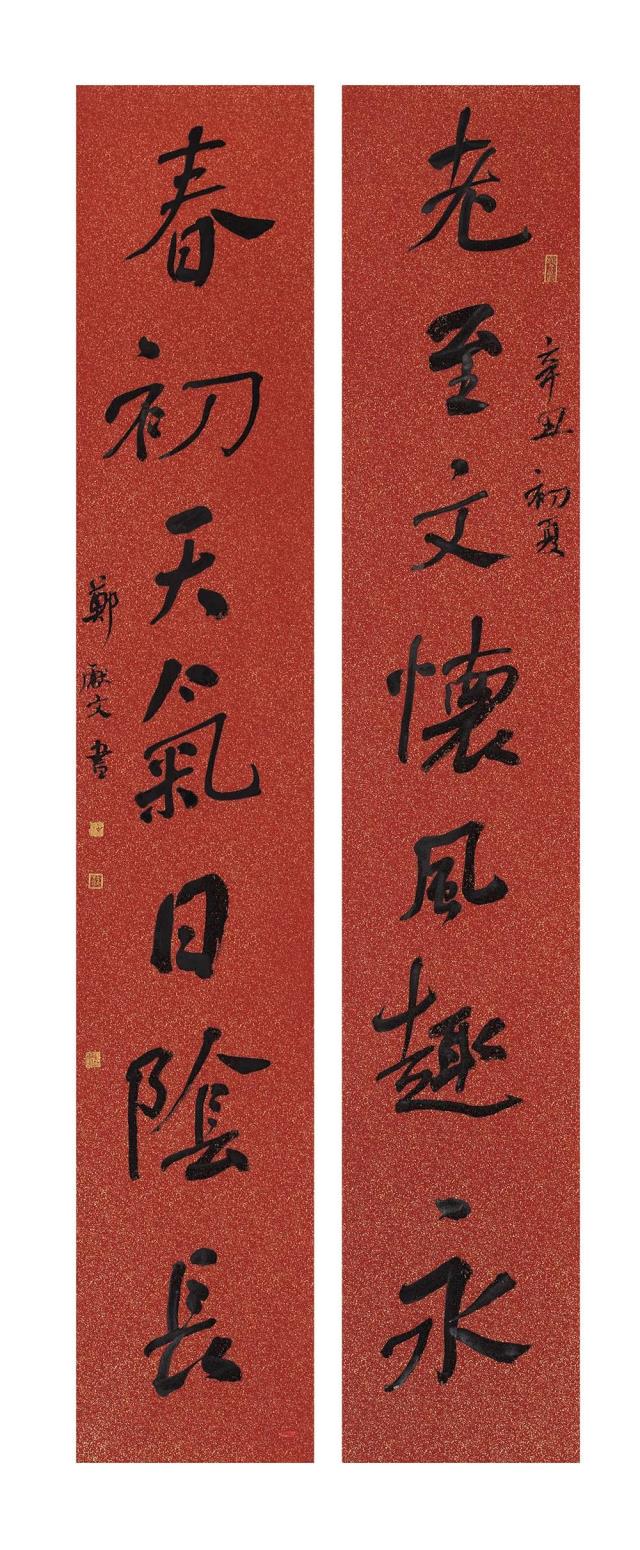 老至文懷風趣永
辛丑初夏
春初天氣日陰長
鄭 文書